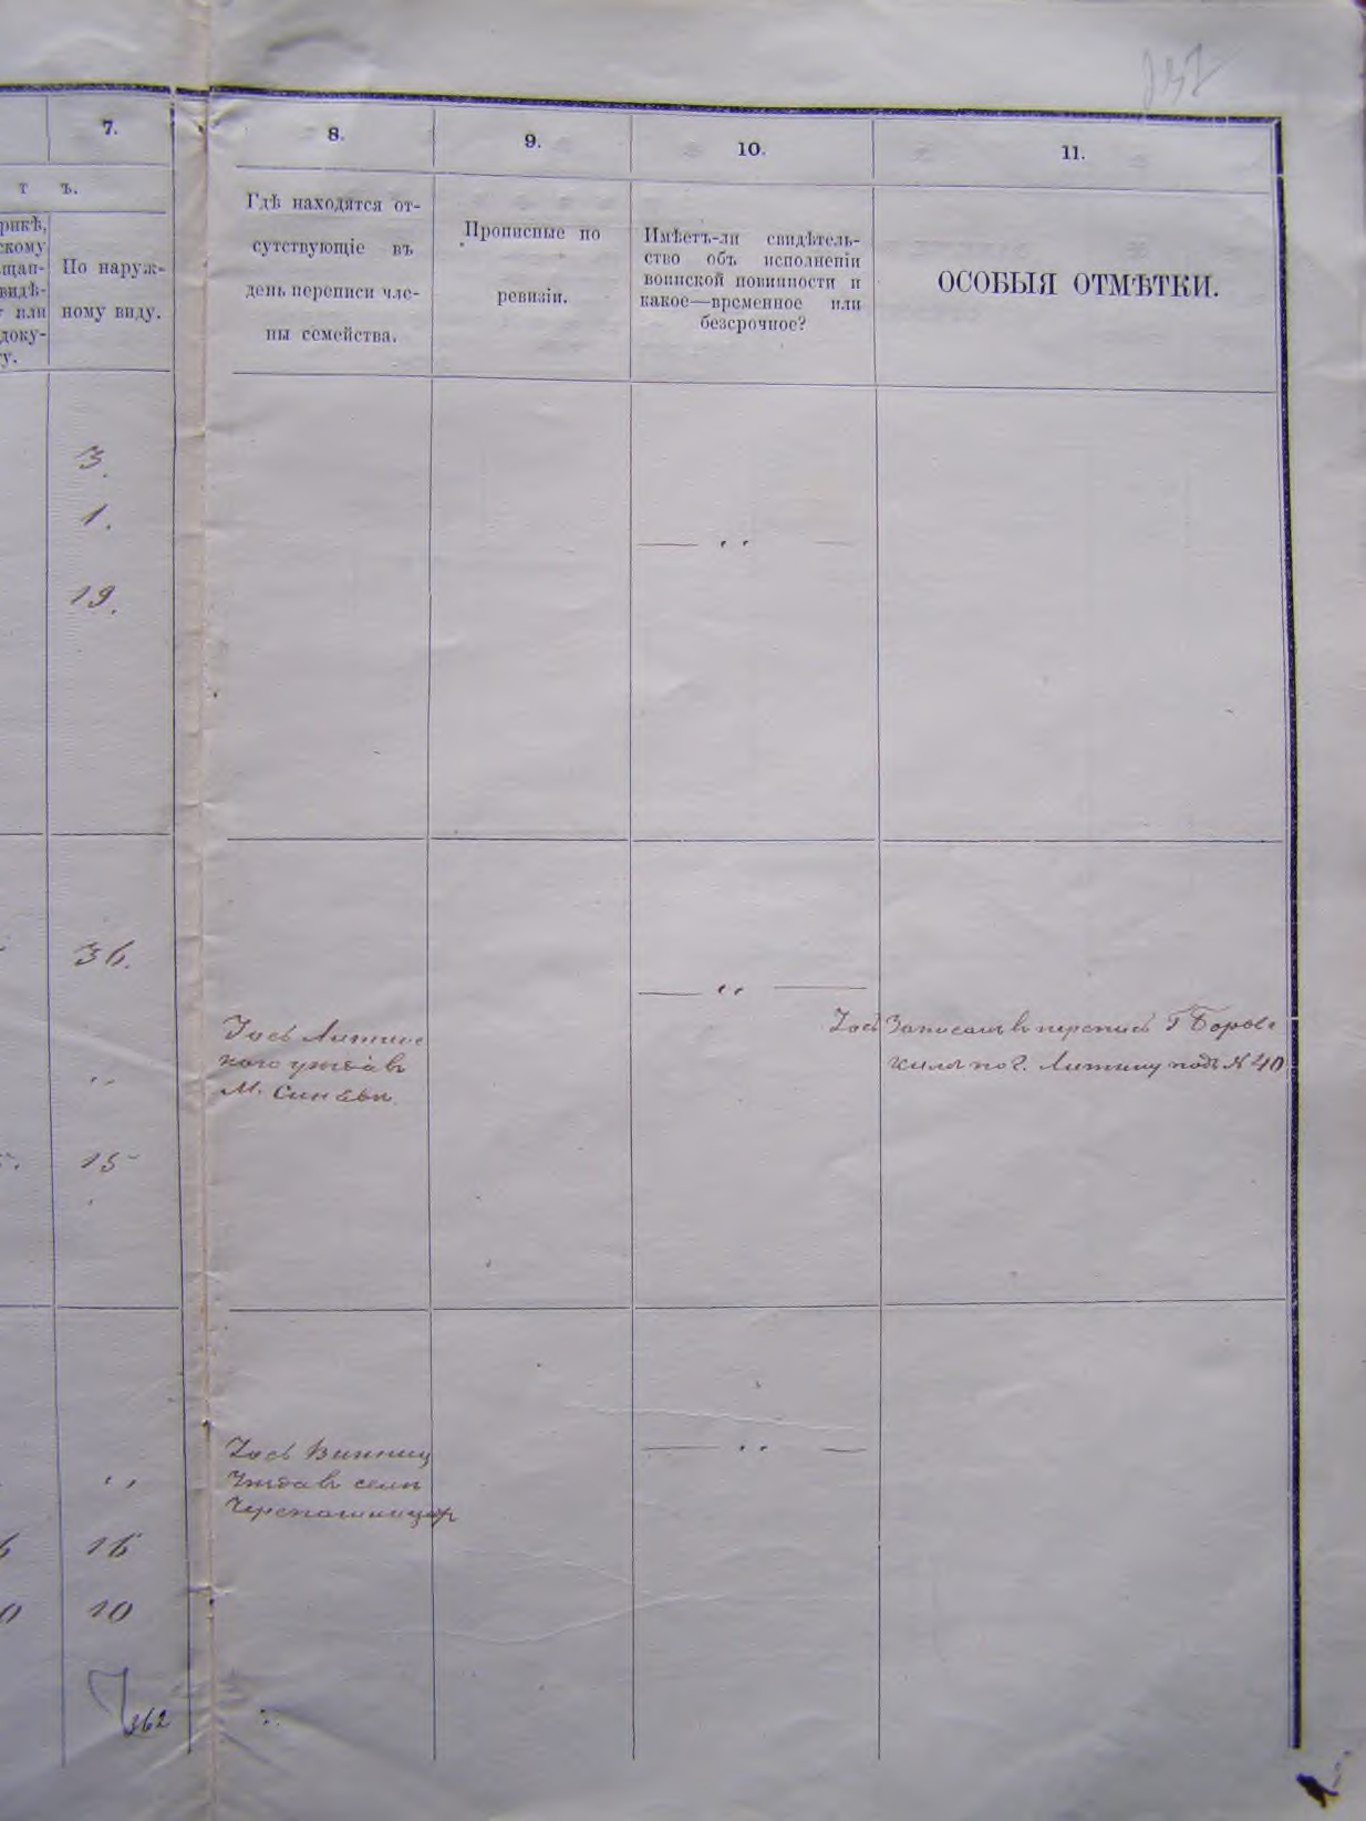 7.
8.
9.
10.
11.
т ъ.
рикѣ,
скому
щан-
видѣ-
или
доку-
у.
По наруж-
ному виду.
Гдѣ находятся от-
сутствующіе въ
день переписи чле-
ны семейства.
Прописные по
ревизіи.
Имѣетъ-ли свидѣтель-
ство объ исполненіи
воинской повинности и
какое—временное или
безсрочное?
ОСОБЫЯ ОТМѢТКИ.
3.
1.
19.
36.
Іось Литинс
кого уѣзда въ
М.
Іось Записанъ в перепись
по г. Литину подъ № 40
15
Іось Винниц
Уѣзда въ селѣ
16
0 10
362